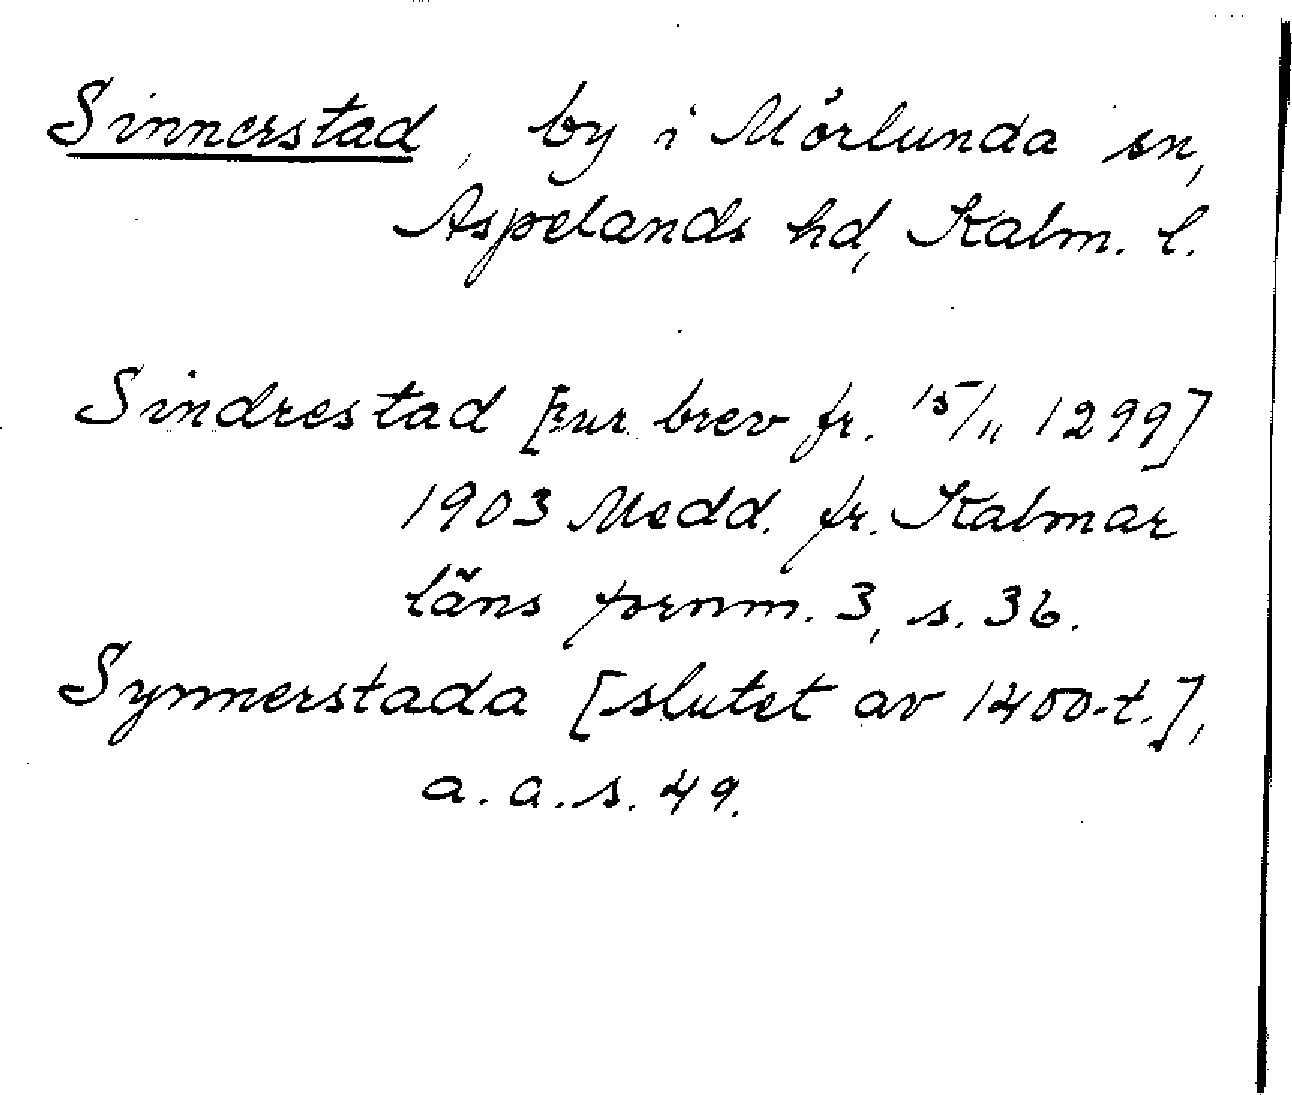 Sinnerstad, by i Mörlunda sn,
Aspelands hd, Kalm. l.
Sindrestad [ur brev fr. 15/11 1299]
1903 Medd. fr. Kalmar
läns fornm. 3, s. 36.
Synnerstada [slutet av 1400-t.],
a. a. s. 49.